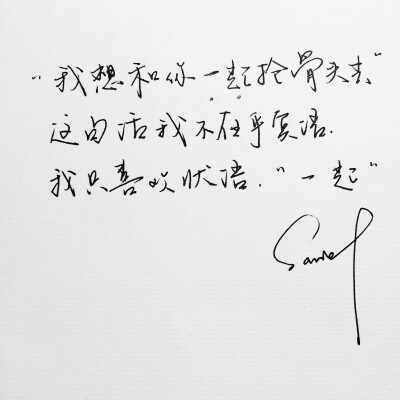 “我想和你一起捡骨头去”
这句话我不在乎宾语.
我只喜欢状语.“一起”